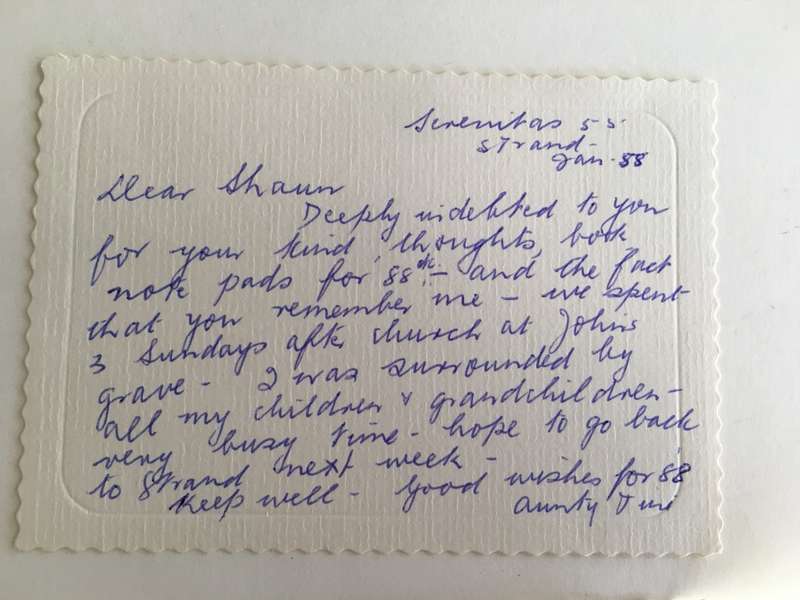 Serenitas 55
Strand -
Jan. 88
Dear Shaun
Deeply indebted to you
for your kind, thoughts, book
note pads for 88 etc. - and the fact
that you remember me - we spent
3 Sundays after church at Johns
grave - I was surrounded by
all my children & grandchildren -
very busy time - hope to go back
to Strand next week -
Keep well - Good wishes for 88
Aunty